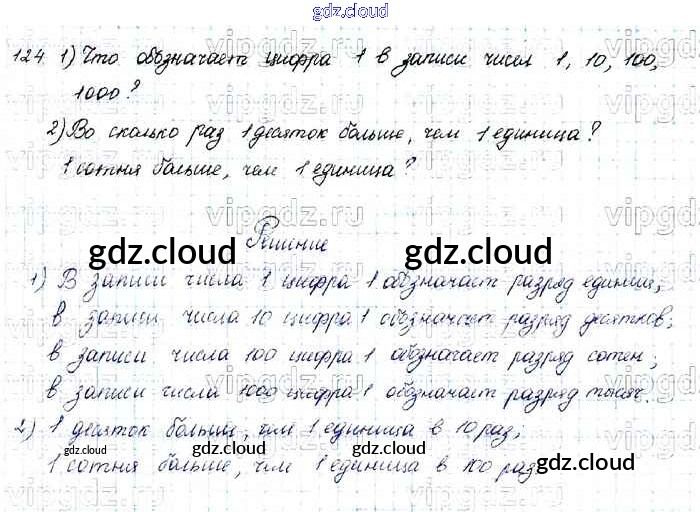 gdz.cloud
124. 1) Что обозначает цифра 1 в записи чисел 1, 10, 100,
1000?
2) Во сколько раз 1 десяток больше, чем 1 единица?
1 сотня больше, чем 1 единица?
vipgdz.ru
Решение
gdz.cloud gdz.cloud
1) В записи числа 1 цифра 1 обозначает разряд единиц;
в записи числа 10 цифра 1 обозначает разряд десятков;
в записи числа 100 цифра 1 обозначает разряд сотен;
в записи числа 1000 цифра 1 обозначает разряд тысяч.
2) 1 десяток больше, чем 1 единица в 10 раз;
1 сотня больше, чем 1 единица в 100 раз
gdz.cloud gdz.cloud gdz.cloud